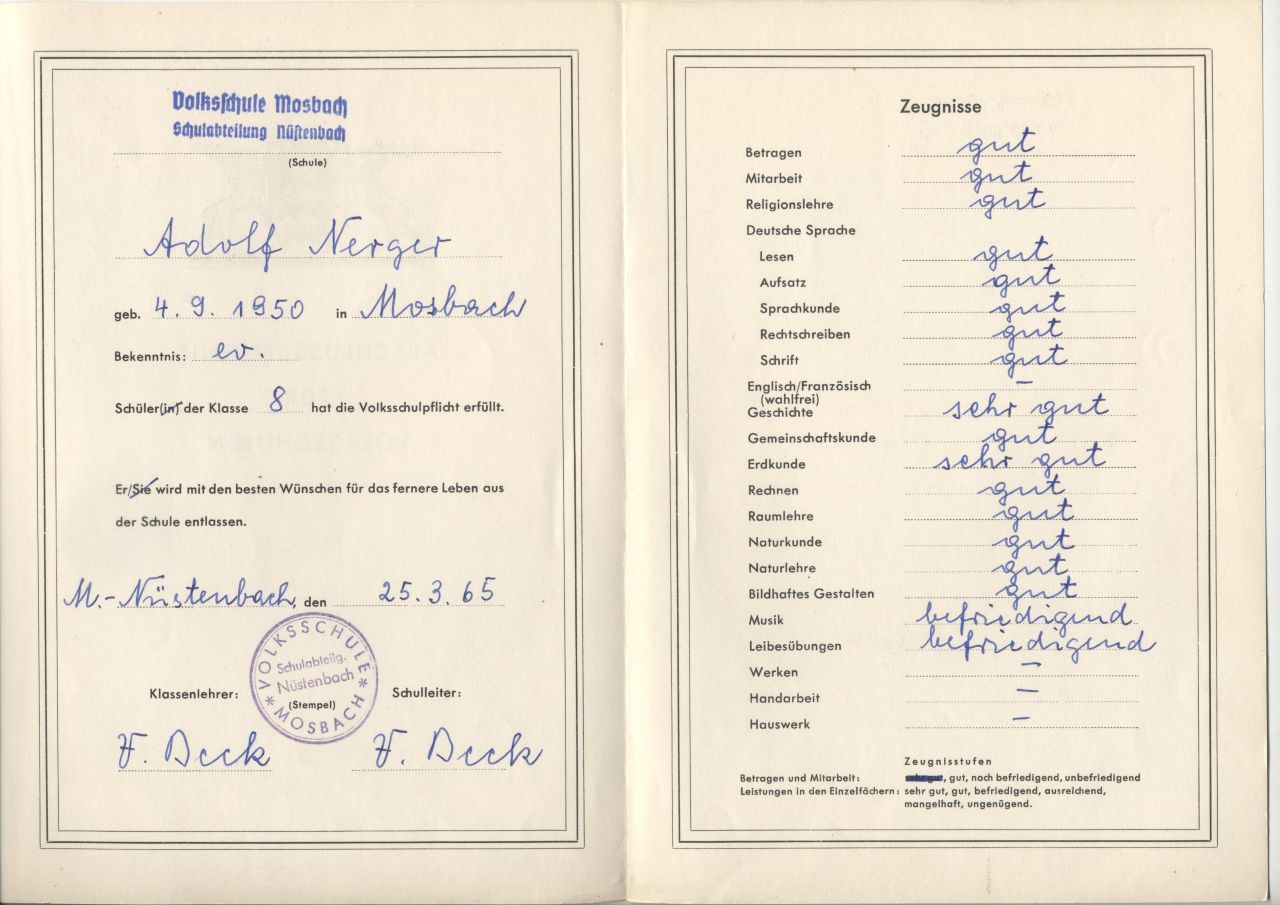 Volksschule Mosbach
Schulabteilung Nüstenbach
(Schule)
Adolf Nerger
geb. 4. 9. 1950 in Mosbach
Bekenntnis: ev.
Schüler(in) der Klasse 8 hat die Volksschulpflicht erfüllt.
Er/Sie wird mit den besten Wünschen für das fernere Leben aus
der Schule entlassen.
M.-Nüstenbach, den 25. 3. 65
VOLKSSCHULE
Schulabteilg.
Nüstenbach
* MOSBACH *
Klassenlehrer: (Stempel) Schulleiter:
F. Beck F. Beck
Zeugnisse
Betragen gut
Mitarbeit gut
Religionslehre gut
Deutsche Sprache
Lesen gut
Aufsatz gut
Sprachkunde gut
Rechtschreiben gut
Schrift gut
Englisch/Französisch –
(wahlfrei)
Geschichte sehr gut
Gemeinschaftskunde gut
Erdkunde sehr gut
Rechnen gut
Raumlehre gut
Naturkunde gut
Naturlehre gut
Bildhaftes Gestalten gut
Musik befriedigend
Leibesübungen befriedigend
Werken –
Handarbeit –
Hauswerk –
Zeugnisstufen
Betragen und Mitarbeit: sehr gut, gut, noch befriedigend, unbefriedigend
Leistungen in den Einzelfächern: sehr gut, gut, befriedigend, ausreichend,
mangelhaft, ungenügend.